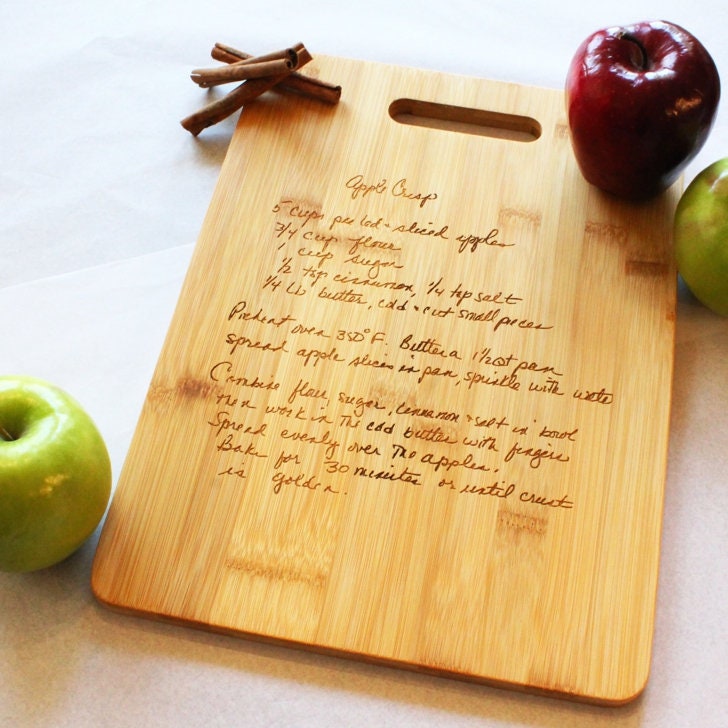 Apple Crisp
5 cups peeled + sliced apples
3/4 cup flour
1 cup sugar
1/2 tsp cinnamon, 1/4 tsp salt
1/4 lb butter, cold + cut small pieces
Preheat oven 350° F. Butter a 1 1/2 qt pan
spread apple slices in pan, sprinkle with water
Combine flour, sugar, cinnamon + salt in bowl
then work in the cold butter with fingers
Spread evenly over the apples.
Bake for 30 minutes or until crust
is golden.